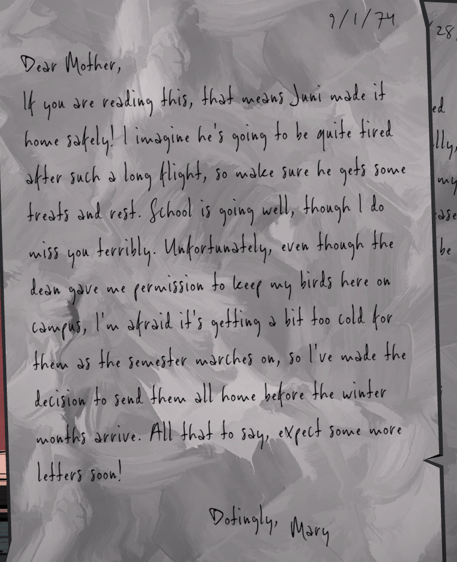 9/1/74
Dear Mother,
If you are reading this, that means Juni made it
home safely! I imagine he's going to be quite tired
after such a long flight, so make sure he gets some
treats and rest. School is going well, though I do
miss you terribly. Unfortunately, even though the
dean gave me permission to keep my birds here on
campus, I'm afraid it's getting a bit too cold for
them as the semester marches on, so I've made the
decision to send them all home before the winter
months arrive. All that to say, expect some more
letters soon!
Dotingly, Mary
28
ed
lly,
my
ase
be